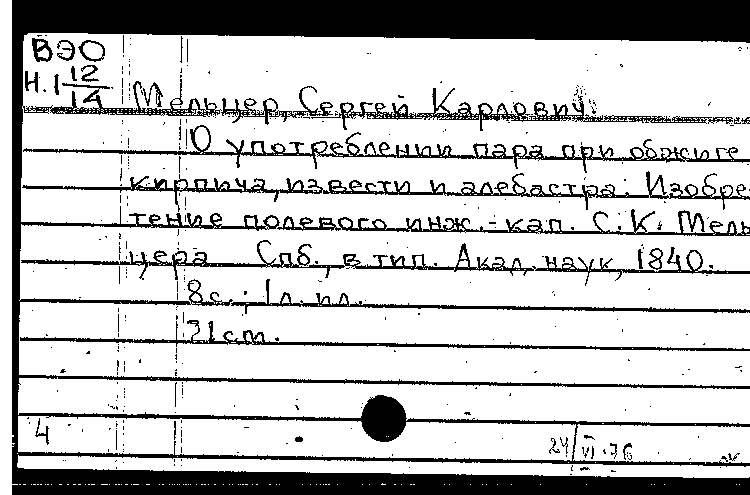 ВЭО
Н.1 12/14
Мельцер, Сергей Карлович.
О употреблении пара при обжиге
кирпича, извести и алебастра. Изобре-
тение полевого инж.-кап. С.К. Мель-
цера Спб., в тип. Акад. наук, 1840.
8 с.; 1 л. ил.
21 см.
4
24/VI-76